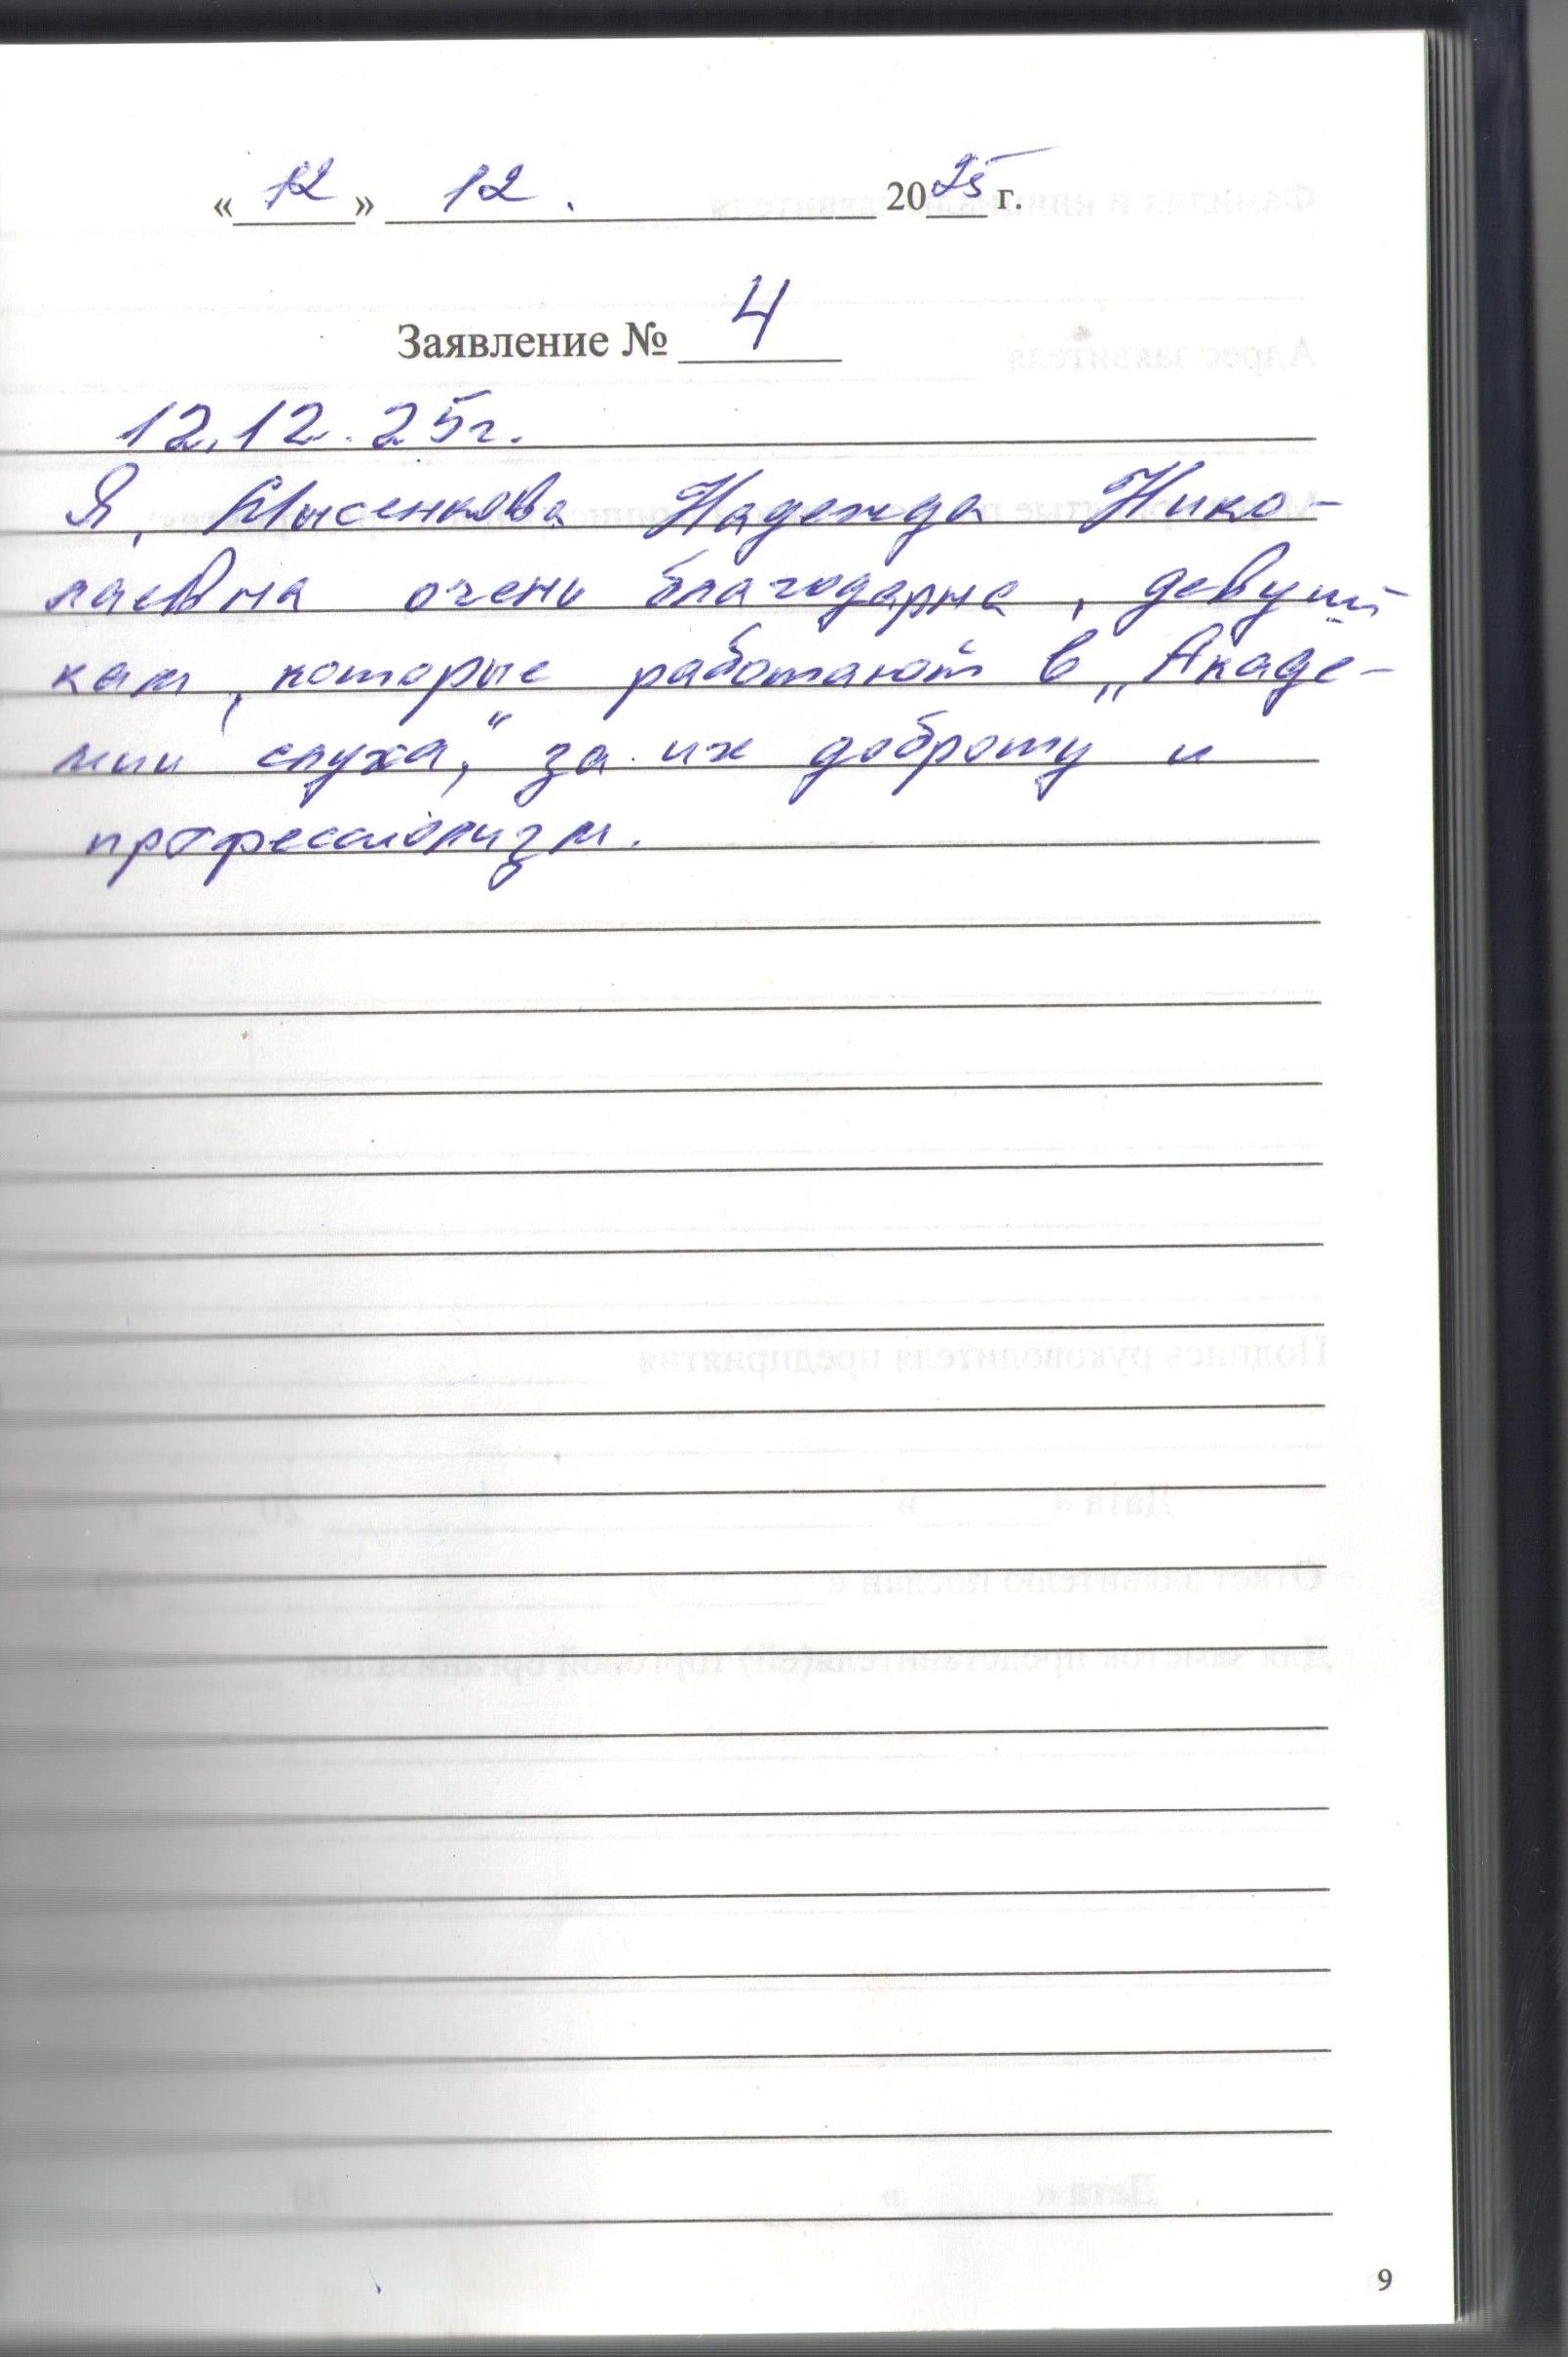 « 12 » 12. 2025 г.
Заявление № 4
12.12.25г.
Я, Надежда Нико-
лаевна очень благодарна, девуш
кам, которые работают в „Акаде-
мии слуха“, за их доброту и
профессионализм.
9